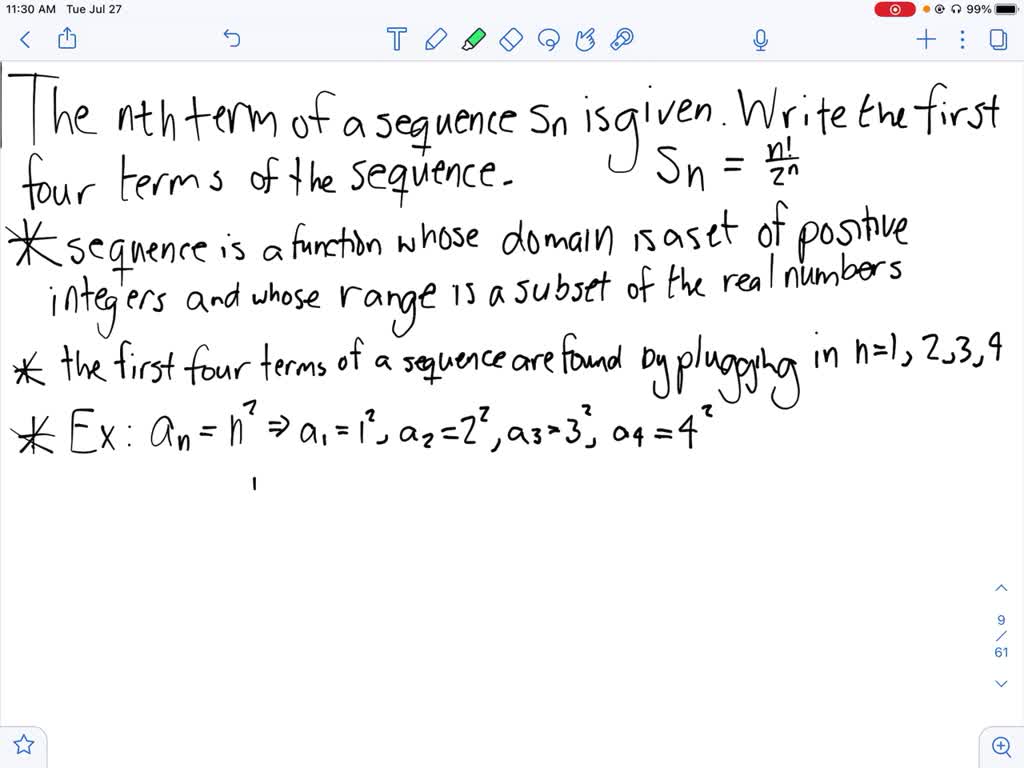 11:30 AM Tue Jul 27 99%
T
The nth term of a sequence Sn is given. Write the first
four terms of the sequence. Sn = n!/2ⁿ
* sequence is a function whose domain is a set of positive
integers and whose range is a subset of the real numbers
* the first four terms of a sequence are found by plugging in n=1, 2, 3, 4
* Ex: an = n² ⇒ a₁ = 1², a₂ = 2², a₃ = 3², a₄ = 4²
9
/
61